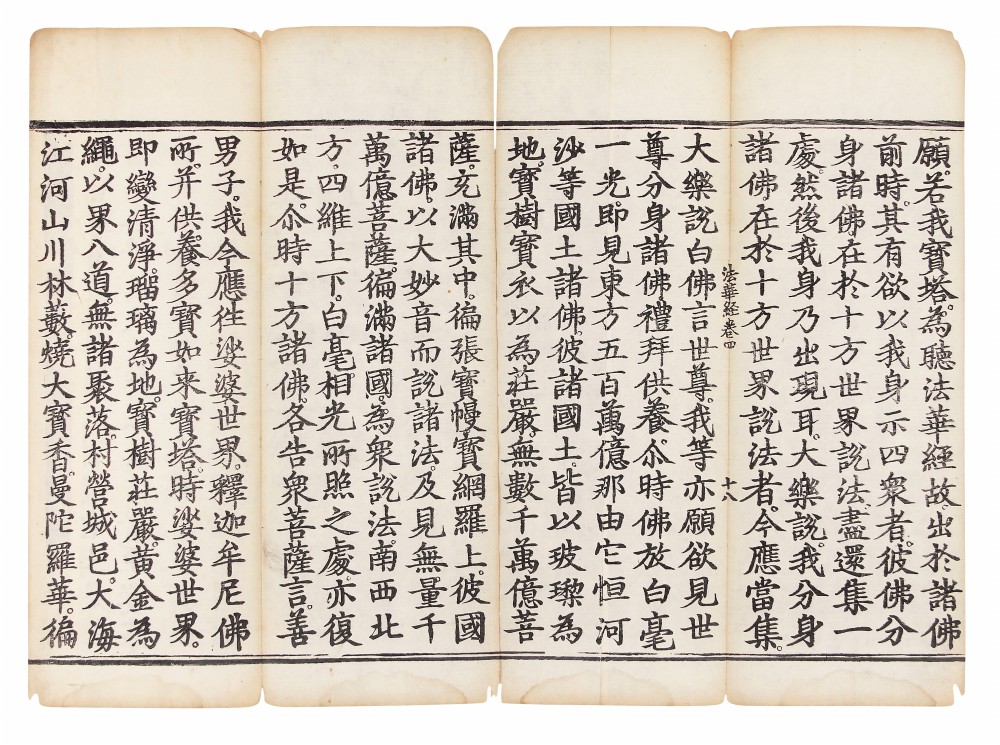 願。若我寶塔。為聽法華經故。出於諸佛
前時。其有欲以我身示四衆者。彼佛分
身諸佛在於十方世界說法盡還集一
處。然後我身乃出現耳。大樂說。我分身
諸佛。在於十方世界說法者。今應當集。
法華經卷四 十八
大樂說白佛言世尊。我等亦願欲見世
尊分身諸佛禮拜供養。尒時佛放白毫
一光。即見東方五百萬億那由它恒河
沙等國土諸佛。彼諸國土。皆以玻瓈為
地。寶樹寶衣以為莊嚴。無數千萬億菩
薩。充滿其中。徧張寶幔寶網羅上。彼國
諸佛。以大妙音而說諸法。及見無量千
萬億菩薩。徧滿諸國。為衆說法。南西北
方。四維上下。白毫相光所照之處。亦復
如是。尒時十方諸佛。各告衆菩薩言。善
男子。我今應徃娑婆世界。釋迦牟尼佛
所。并供養多寶如來寶塔。時娑婆世界。
即變清淨。瑠璃為地。寶樹莊嚴黃金為
繩。以界八道。無諸聚落。村營城邑。大海
江河山川林藪。燒大寶香。曼陀羅華。徧